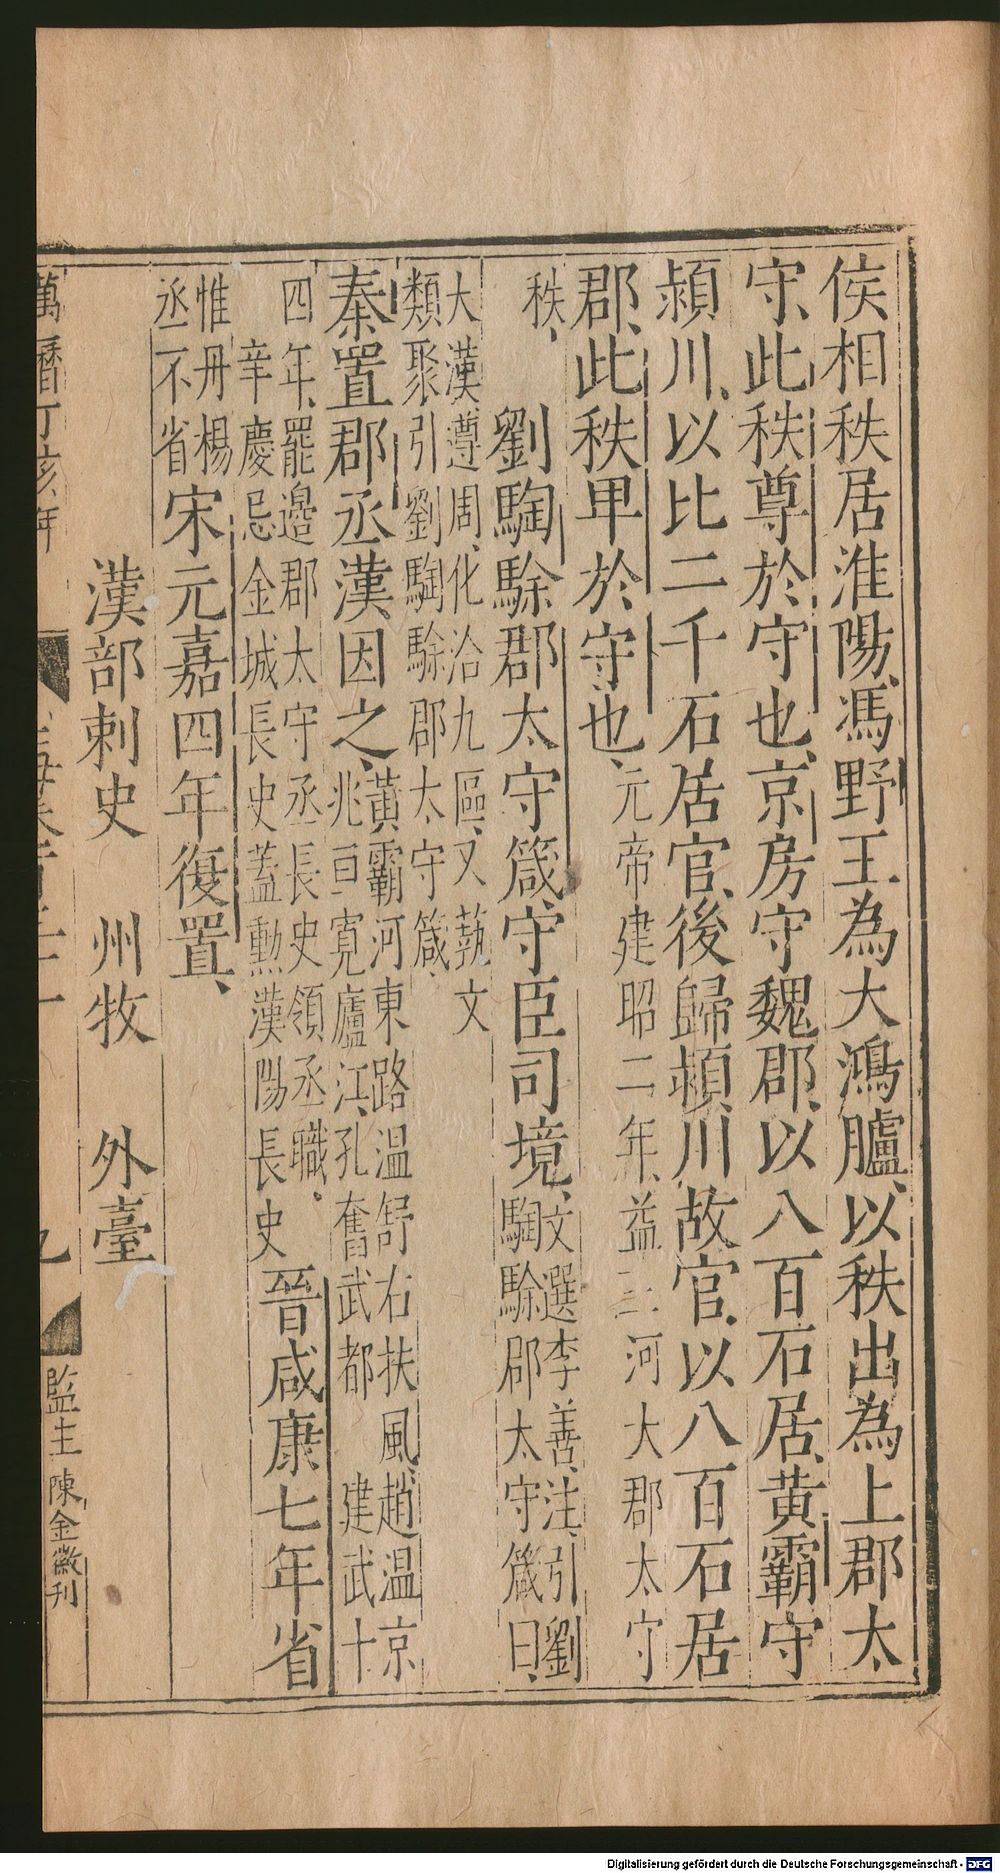 侯相秩居淮陽馮野王為大鴻臚以秩出為上郡太
守此秩尊於守也京房守魏郡以八百石居黃霸守
潁川以比二千石居官後歸潁川故官以八百石居
郡此秩卑於守也元帝建昭二年益三河大郡太守
秩
劉騊駼郡太守箴守臣司境文選李善注引劉
騊駼郡太守箴曰
大漢遵周化洽九區又蓺文
類聚引劉騊駼郡太守箴
秦置郡丞漢因之黃霸河東路温舒右扶風趙温京
兆亘寛廬江孔奮武都建武十
四年罷邊郡太守丞長史領丞職
辛慶忌金城長史蓋勲漢陽長史
晉咸康七年省
惟丹楊
丞不省
宋元嘉四年復置
漢部刺史 州牧 外臺
萬曆丁亥年
九
監生陳金徽刊
Digitalisierung gefördert durch die Deutsche Forschungsgemeinschaft - DFG